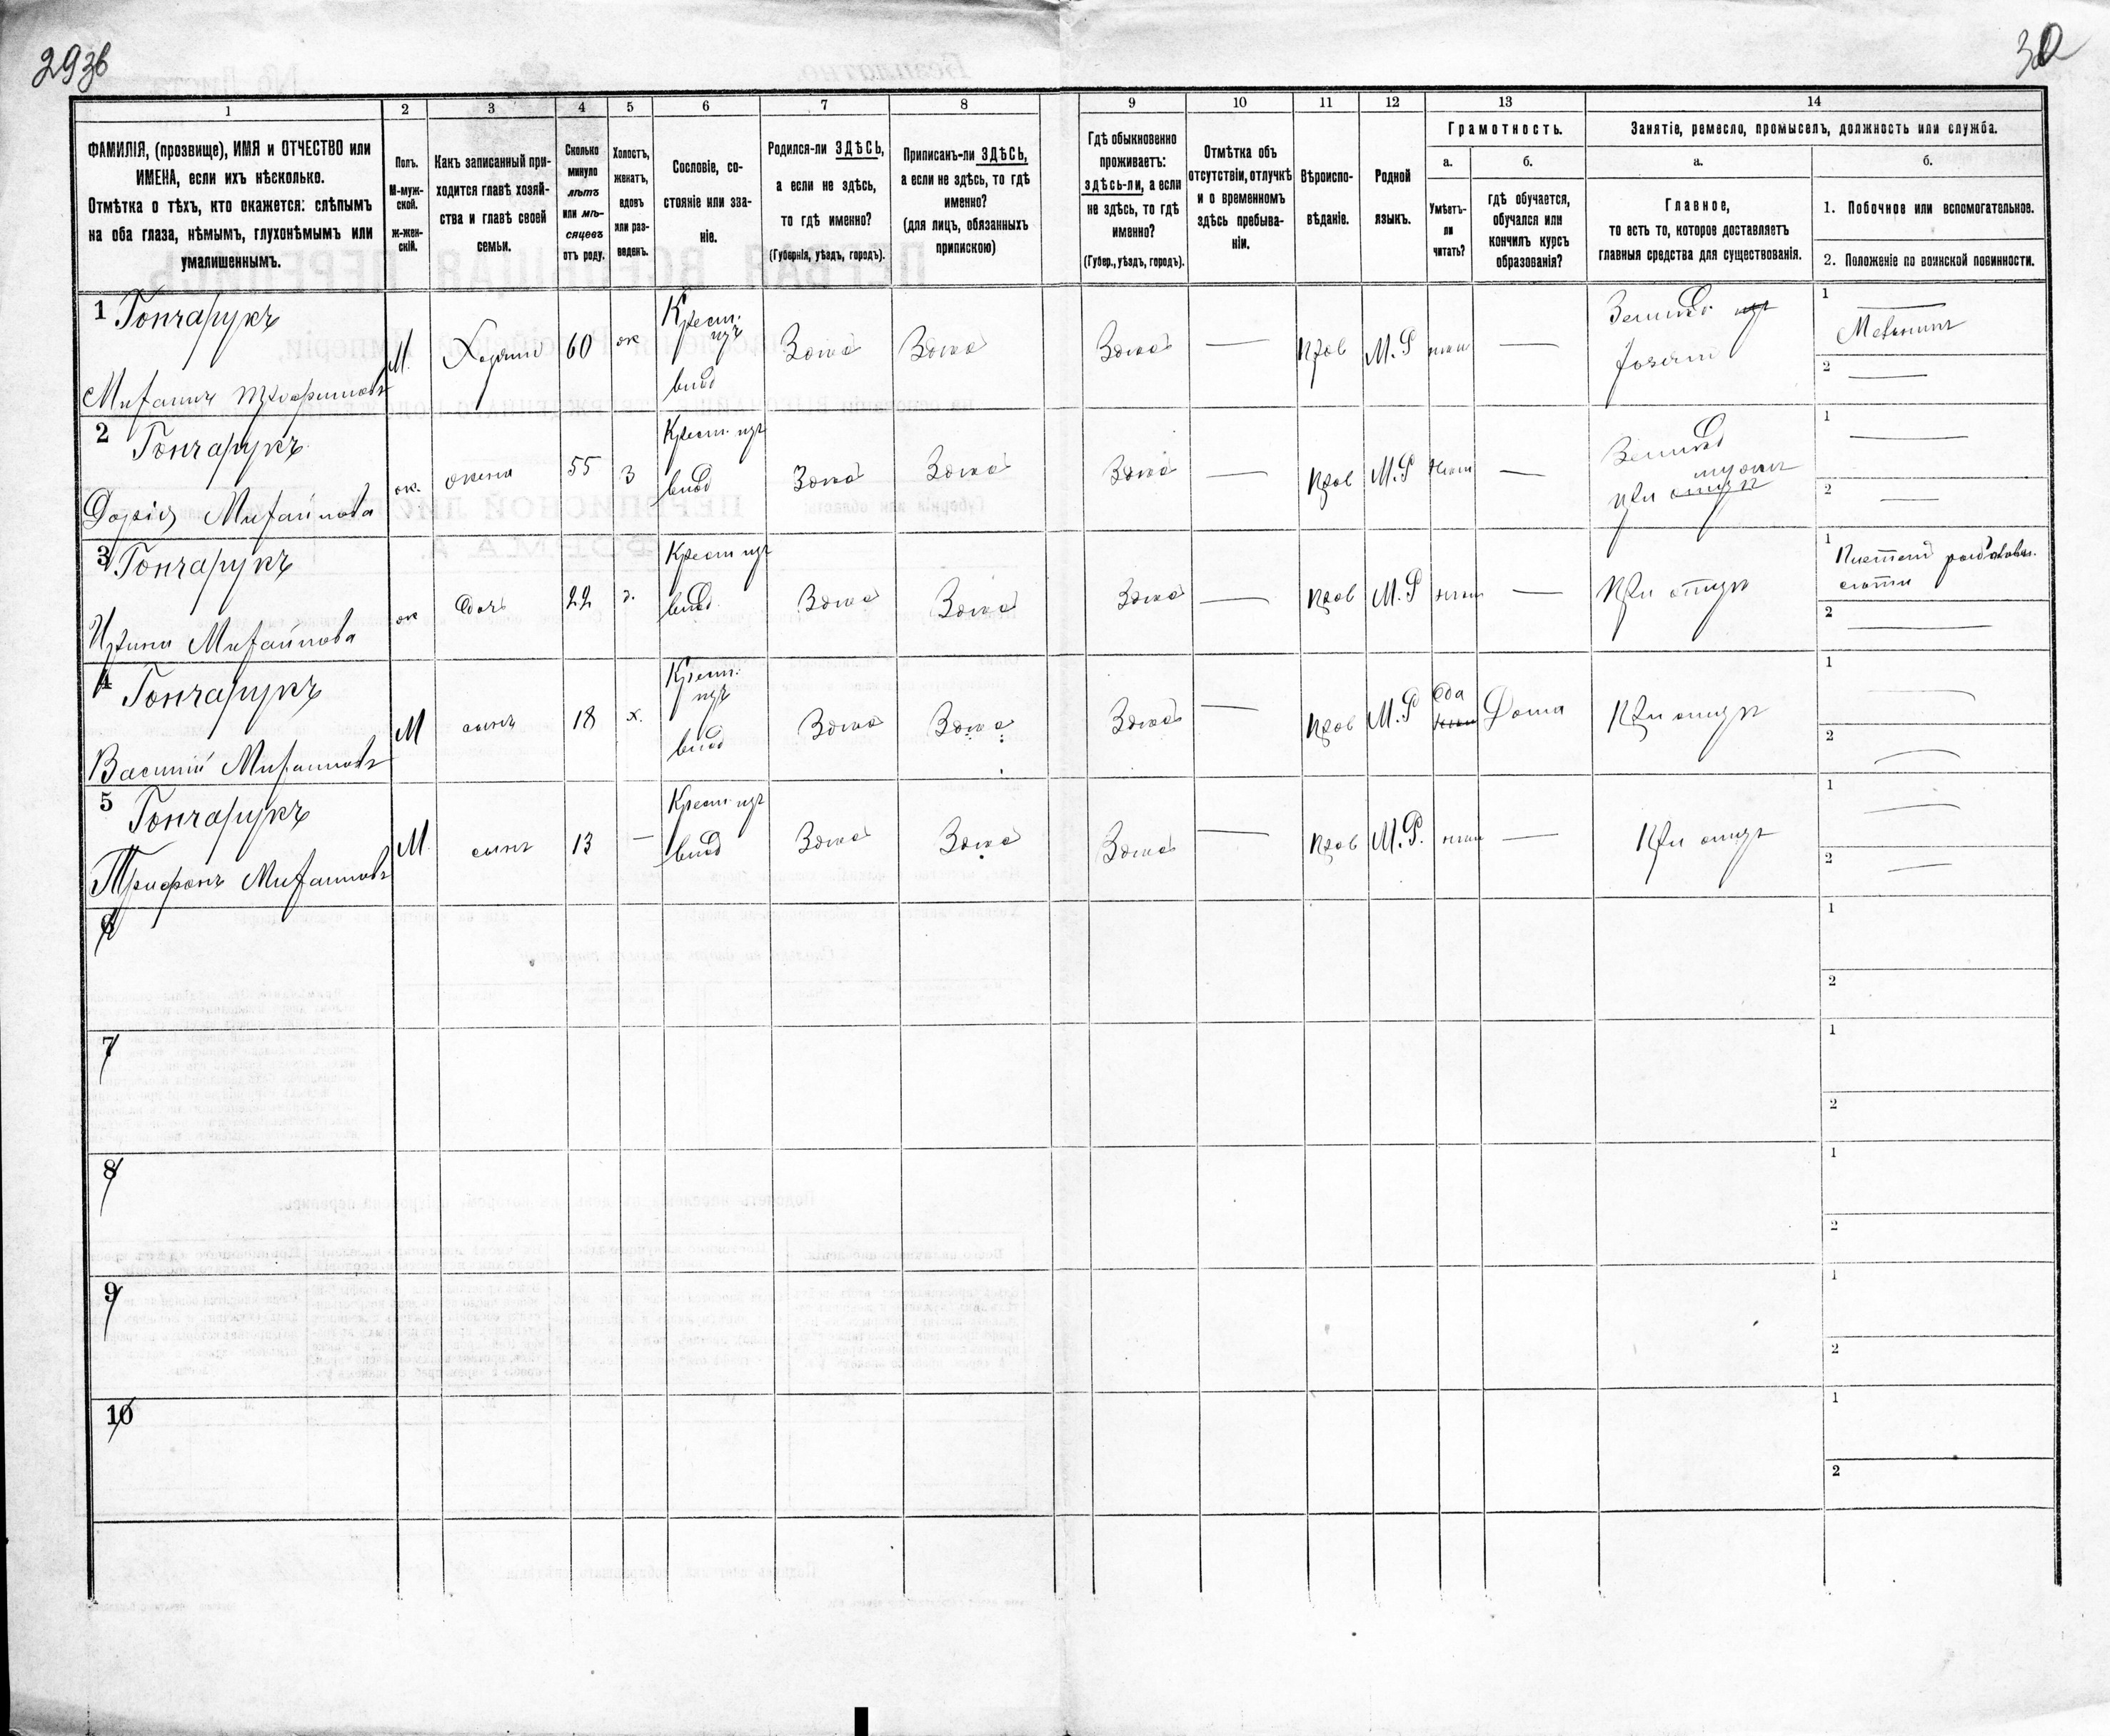 293б
30
1
ФАМИЛІЯ, (прозвище), ИМЯ и ОТЧЕСТВО или
ИМЕНА, если ихъ нѣсколько.
Отмѣтка о тѣхъ, кто окажется: слѣпымъ
на оба глаза, нѣмымъ, глухонѣмымъ или
умалишеннымъ.
2
Полъ.
М-муж-
ской.
ж-жен-
скій.
3
Какъ записанный при-
ходится главѣ хозяй-
ства и главѣ своей
семьи.
4
Сколько
минуло
лѣтъ
или мѣ-
сяцевъ
отъ роду.
5
Холостъ,
женатъ,
вдовъ
или раз-
веденъ.
6
Сословіе, со-
стояніе или зва-
ніе.
7
Родился-ли ЗДѢСЬ,
а если не здѣсь,
то гдѣ именно?
(Губернія, уѣздъ, городъ).
8
Приписанъ-ли ЗДѢСЬ,
а если не здѣсь, то гдѣ
именно?
(для лицъ, обязанныхъ
припискою)
9
Гдѣ обыкновенно
проживаетъ:
здѣсь-ли, а если
не здѣсь, то гдѣ
именно?
(Губер., уѣздъ, городъ).
10
Отмѣтка объ
отсутствіи, отлучкѣ
и о временномъ
здѣсь пребыва-
ніи.
11
Вѣроиспо-
вѣданіе.
12
Родной
языкъ.
13
Грамотность.
а.
Умѣетъ-
ли
читать?
б.
гдѣ обучается,
обучался или
кончилъ курсъ
образованія?
14
Занятіе, ремесло, промыселъ, должность или служба.
а.
Главное,
то есть то, которое доставляетъ
главныя средства для существованія.
б.
1. Побочное или вспомогательное.
2. Положеніе по воинской повинности.
1 Гончарукъ
Михаилъ Трофимовъ
М.
Хозяинъ
60
ж
Крест.
изъ
влад
Здѣсь
Здѣсь
Здѣсь
—
Прав
М.Р
—
1 —
Мельникъ
2 —
2 Гончарукъ
Дарія Михайлова
ж.
жена
55
З
Крест изъ
влад
Здѣсь
Здѣсь
Здѣсь
—
Прав
М.Р
—
при мужѣ
1 —
2 —
3 Гончарукъ
Ирина Михайлова
ж
Дочь
22
д.
Крест изъ
влад
Здѣсь
Здѣсь
Здѣсь
—
Прав
М.Р
—
При отцѣ
1
2 —
4 Гончарукъ
Василій Михаиловъ
М
сынъ
18
х.
Крест.
изъ
влад
Здѣсь
Здѣсь
Здѣсь
—
Прав
М.Р
да
Дома
При отцѣ
1 —
2 —
5 Гончарукъ
Трифонъ Михаиловъ
М
сынъ
13
—
Крест изъ
влад
Здѣсь
Здѣсь
Здѣсь
—
Прав
М.Р.
—
При отцѣ
1 —
2 —
6
1
2
7
1
2
8
1
2
9
1
2
10
1
2